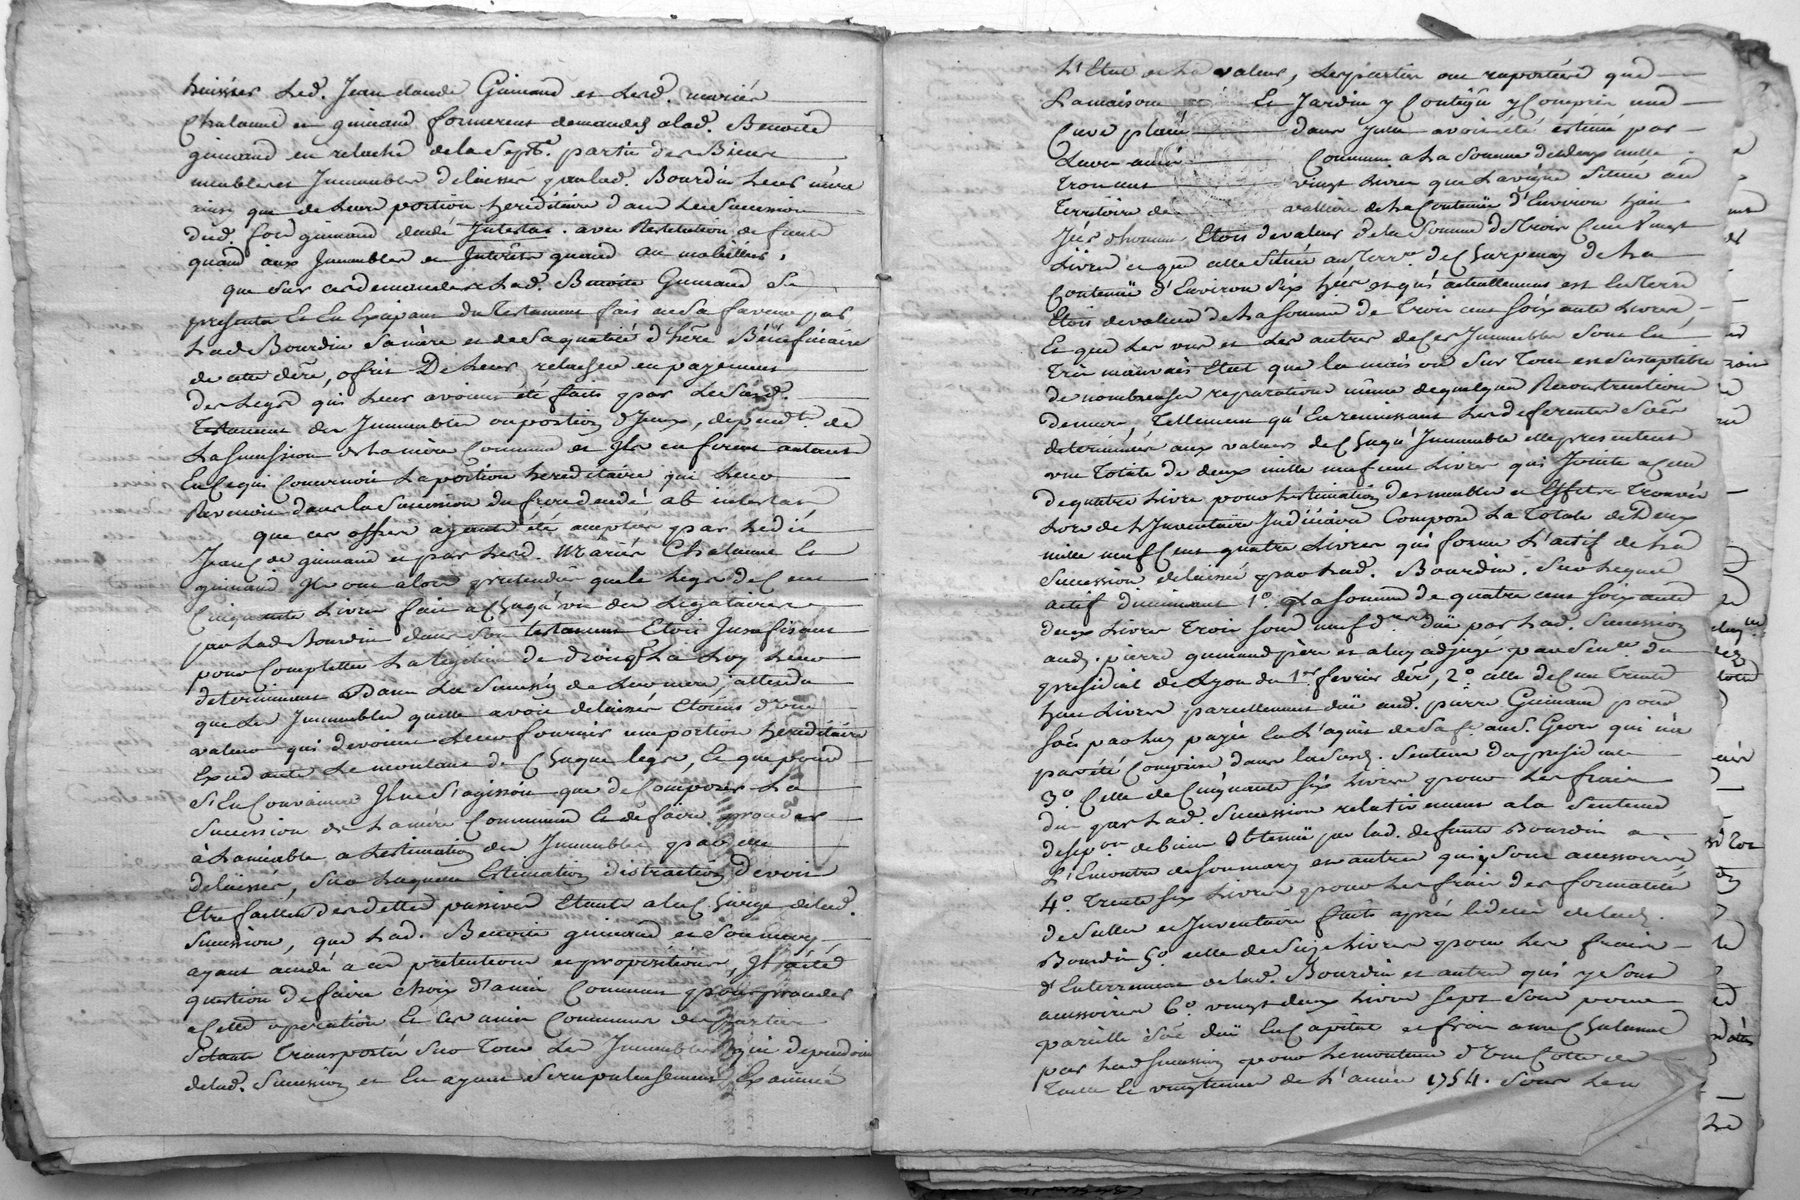 huissier Led. Jean claude Guinand et Lesd. mariés
Chalanne et guinand formerent demandes alad. Benoite
guinand en relaché de la Septe. partie des Biens
meubles et Immeubles delaissés par lad. Bourdin Leur mère
ainsy que de Leur portion héréditaire dans La Succession
dud. feu guinand décédé Intestat. avec Restitution de fruits
quand aux Immeubles et Interêts quand au mobillier,
que Sur ces demandes Lad. Benoite Guinand Se
presenta Et En Excipant du Testament fait en Sa faveur par
Lad. Bourdin Sa mère et de Sa qualité d'here. Bénéficiaire
de cette dère, offrit De Leur relascher en payement
des Legs qui Leur avoient été faits par Le Susd.
Testament des Immeubles ou portion d'Iceux, depend.t de
La Succession de La mère Commune et Ils en firent autant
En Ce qui Concernoit La portion héréditaire qui Leur
Revenoit dans la Succession du frere decedé ab intestat,
que ces offres ayant été acceptées par Ledit
Jean C.de guinand et par Lesd. Mariés Chalanne Et
guinand Ils ont alors pretendu que le Legs de Cent
Cinquante Livres fait a Chaqu'un des Légataires
par Lad. Bourdin dans Son testament Etoit Insufisant
pour Completter La légitime de droit que La Loy Leur
determinoit dans La Succession de Leur mere, attendu
que Les Immeubles quelle avoit delaissés Etoient d'une
valeur qui devoient Leur fournir une portion héréditaire
Excedante Le montant de Chaque legs, Et que pour
S'En Convaincre Il ne S'agissoit que de Composer La
Succession de La mère Commune Et de faire proceder
à L'amiable a L'estimation des Immeubles par elle
delaissés, Sur Laquelle Estimation distraction devoit
Etre faitte des dettes passives Etant a la Charge de lad.
Succession, que Lad. Benoite guinand et Son mary
ayant accedé a ces prétentions et propositions, Il a été
question de faire choix d'amis Communs pour proceder
a Cette operation Et Ces amis Communs des parties
S'étant Transportés Sur Tous Les Immeubles qui dependoient
de lad. Succession et Les ayant Scrupuleusement Examinés
L'Etat et La valeur, Les parties ont raporté que
La maison Et Jardin y Contigu y Compris une
Cuve placée dans Icelle avoit été estimé par
Leurs amis Communs a La Somme de deux mille
Trois cent vingt Livres que La vigne Située au
Territoire de de La Contenue d'Environ huit
Jées d'hommes Etoit de valeur de la Somme de Trois Cent vingt
Livres et que celle Située au Terr.re de Charpenay de La
Contenue d'Environ Six Jées et qui actuellement est En Terre
Etoit de valeur de La Somme de Trois cent soixante Livres,
Et que Les uns et Les autres de Ces Immeubles Sont En
Très mauvais Etat que la maison Sur Tout est Susceptible
de nombreuses reparations même de quelques Reconstructions
de murs, Tellement qu'En reunissant Les differentes Soes
determinées aux valeurs de Chaqu'Immeuble elle presentent
une Totale de deux mille neuf cent Livres qui Jointe a Celle
de quatre Livres pour L'estimation des meubles et Effets Trouvés
Lors de L'Inventaire Judiciaire Compose La Totale de Deux
mille neuf Cent quatre Livres qui forme L'actif de La
Succession delaissée par Lad. Bourdin. Sur Lequel
actif diminuant 1°. La Somme de quatre cent soixante
deux Livres Trois Sous neuf d.ers due par Lad. Succession
aud. pierre guinand père et a luy adjugé par Sen.ce du
presidial de Lyon du 1er. fevrier der, 2°. celle de Cent Trente
huit Livres pareillement due aud. pierre Guinand pour
Soe par Luy payée En L'aquit de Sa f.e au S. Geory qui n'a
pas été Comprise dans La Susd. Sentence du presidial
3°. Celle de Cinquante Six Livres pour Les frais
du par Lad. Succession relativement a la Sentence
de Sep.on de biens obtenue par lad. defunte Bourdin a
L'Encontre de Son mary et autres qui y Sont accessoires
4°. Trente Six Livres pour Les frais des formalités
de Scellé et Inventaire faits après le décès de lad.
Bourdin 5°. celle de Seize Livres pour Les frais
d'Enterrement de lad. Bourdin et autres qui y Sont
accessoires 6°. vingt deux Livres Sept Sous pour
pareille Soe due En Capital et frais aux Chalanne
par Lad. Succession pour Le montant d'une Cotte de
Taille Et vingtieme de L'année 1784. Sous Les